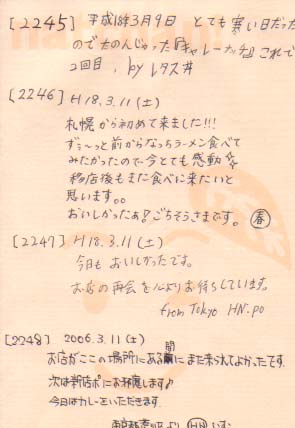 [2245] 平成18年3月9日 とても寒い日だった
のでたのんじゃった『キャレーナッチ』これで
2回目。by レタス丼
[2246] H18.3.11(土)
札幌から初めて来ました!!!
ずぅ〜っと前からなっちラーメン食べて
みたかったので今とても感動☆☆
移店後もまた食べに来たいと
思います。。
おいしかったぁ!ごちそうさまです。(春)
[2247] H18.3.11(土)
今日もおいしかったです。
お店の再会を心よりお待ちしています。
from Tokyo HN.po
[2248] 2006.3.11(土)
お店がここの場所にある間にまた来られてよかったです。
次は新店舗にお邪魔します♪
今日はカレーをいただきます。
東京都